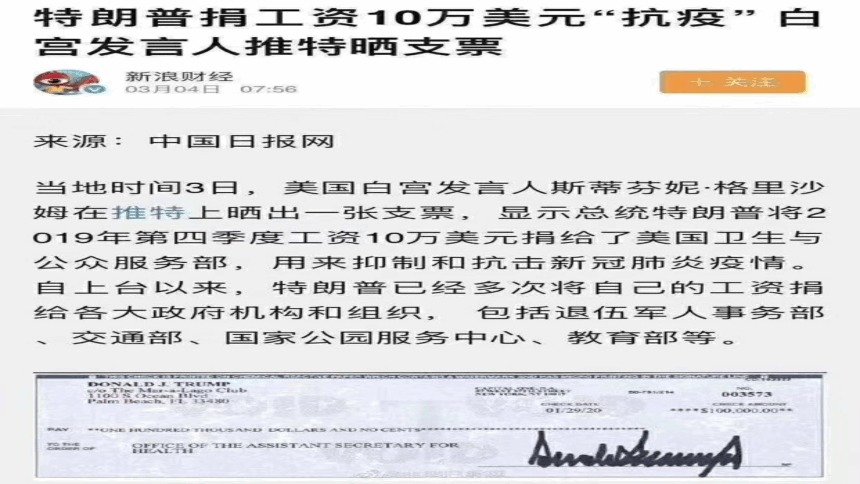 特朗普捐工资10万美元“抗疫”白
宫发言人推特晒支票
新浪财经
03月04日 07:56
＋ 关注
来源：中国日报网
当地时间3日，美国白宫发言人斯蒂芬妮·格里沙
姆在推特上晒出一张支票，显示总统特朗普将2
019年第四季度工资10万美元捐给了美国卫生与
公众服务部，用来抑制和抗击新冠肺炎疫情。
自上台以来，特朗普已经多次将自己的工资捐
给各大政府机构和组织，包括退伍军人事务部
、交通部、国家公园服务中心、教育部等。
DONALD J. TRUMP
c/o The Mar-a-Lago Club
1100 S Ocean Blvd
Palm Beach, FL 33480
NO.
003573
CHECK DATE
CHECK AMOUNT
01/29/20
****$100,000.00**
PAY **ONE HUNDRED THOUSAND DOLLARS AND NO CENTS
TO THE
ORDER OF
OFFICE OF THE ASSISTANT SECRETARY FOR
HEALTH